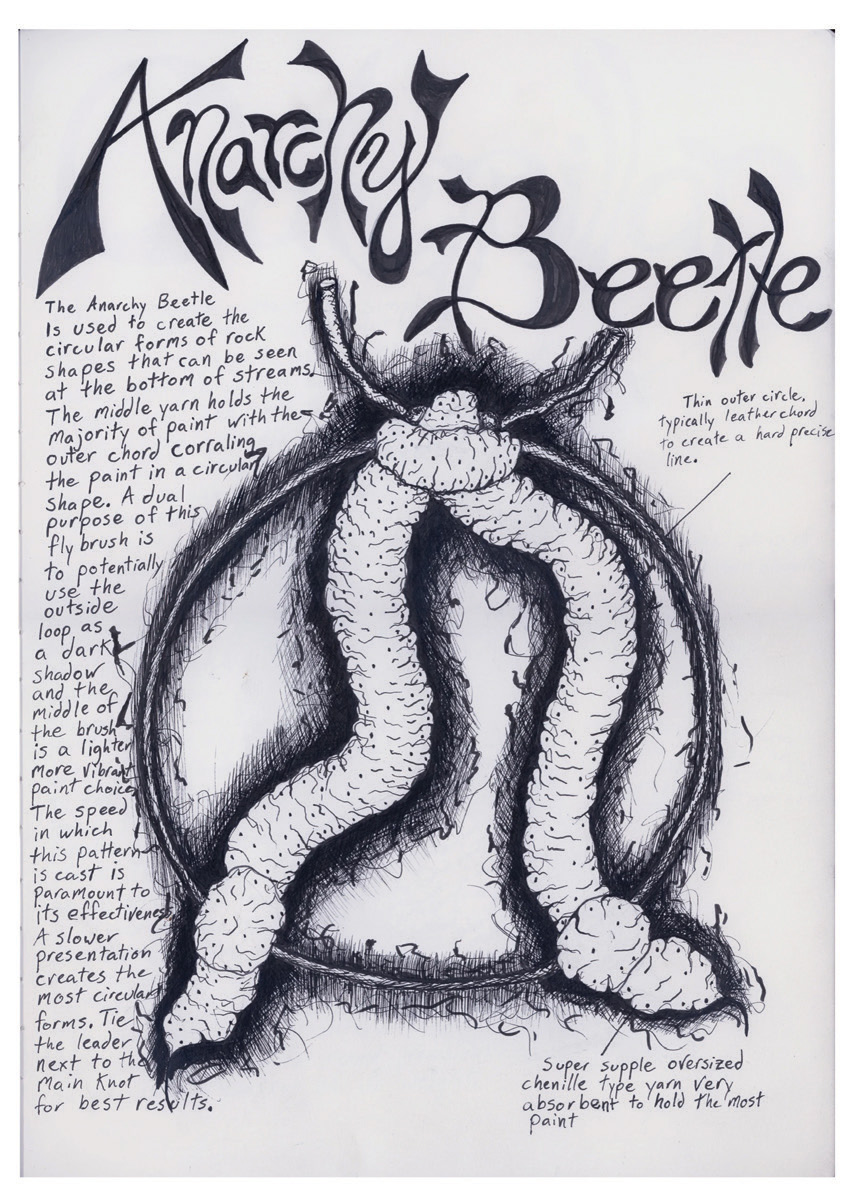 Anarchy
Beetle
The Anarchy Beetle
Is used to create the
circular forms of rock
shapes that can be seen
at the bottom of streams.
The middle yarn holds the
majority of paint with the
outer chord corraling
the paint in a circular
shape. A dual
purpose of this
fly brush is
to potentially
use the
outside
loop as
a dark
shadow
and the
middle of
the brush
is a lighter
more vibrant
paint choice.
The speed
in which
this pattern
is cast is
paramount to
its effectiveness.
A slower
presentation
creates the
most circular
forms. Tie
the leader
next to the
Main Knot
for best results.
Thin outer circle,
typically leather chord
to create a hard precise
line.
Super supple oversized
chenille type yarn very
absorbent to hold the most
paint